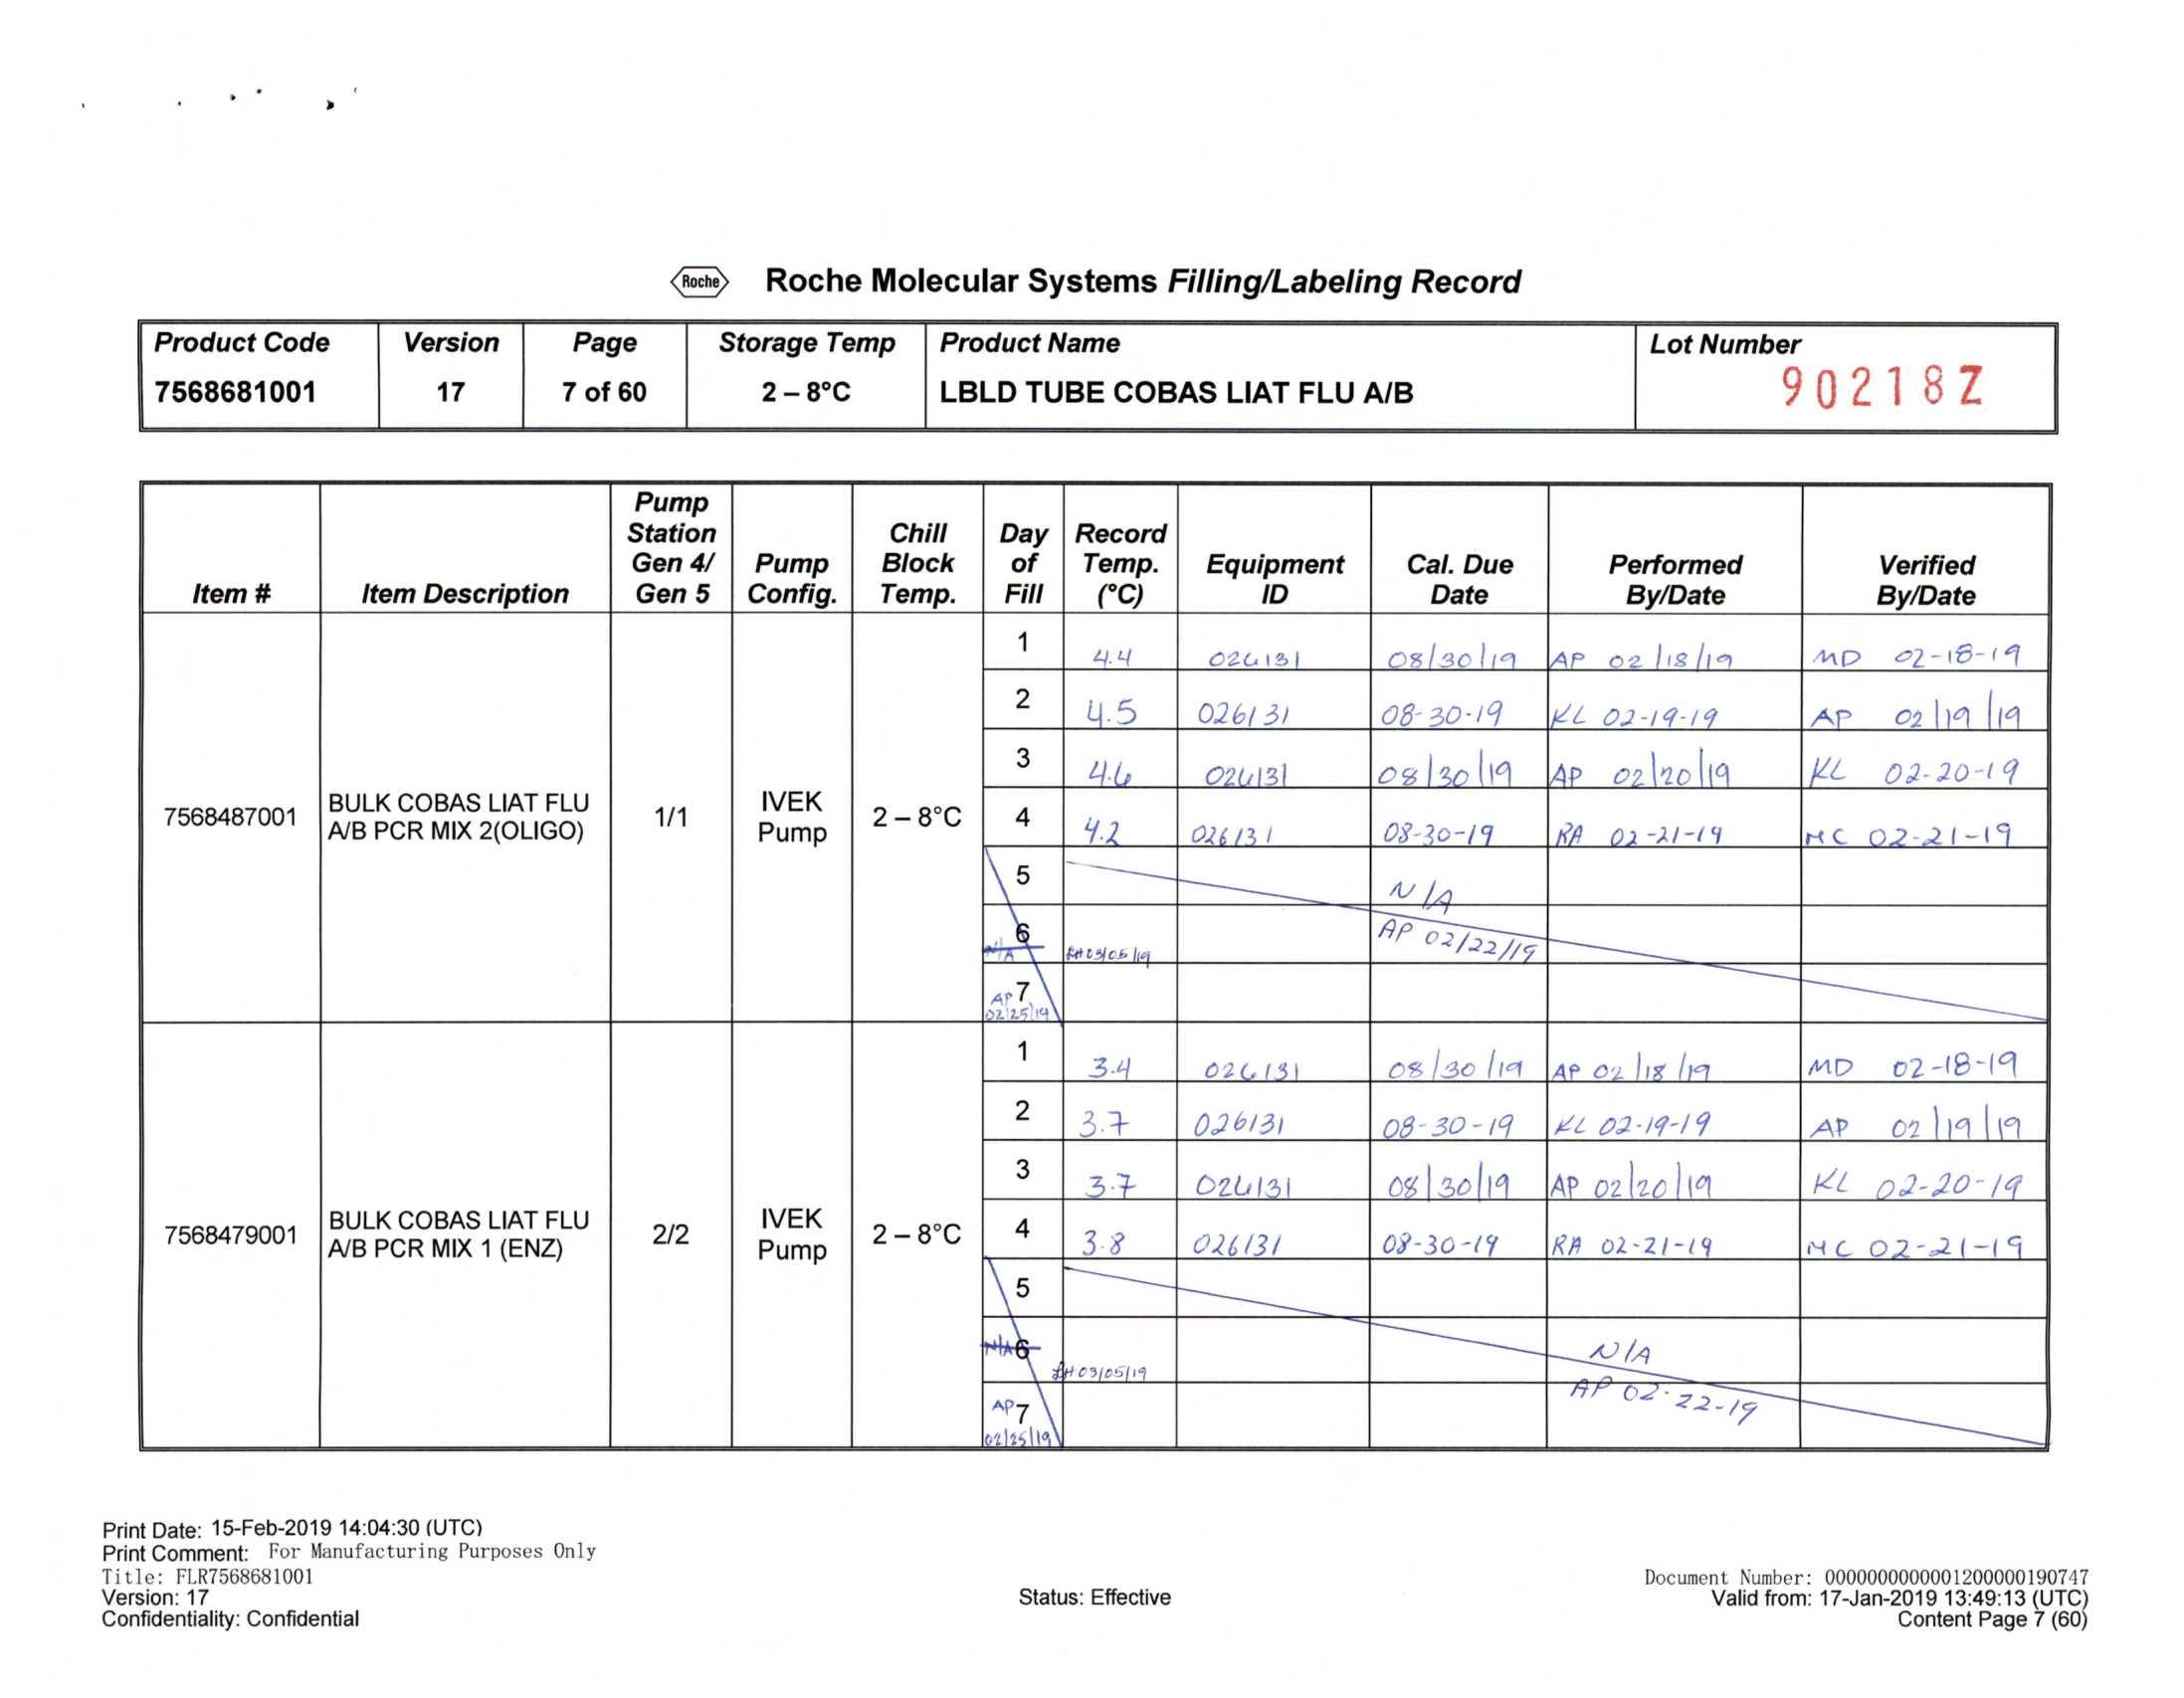 Roche Roche Molecular Systems Filling/Labeling Record
Product Code Version Page Storage Temp Product Name Lot Number
7568681001 17 7 of 60 2 – 8°C LBLD TUBE COBAS LIAT FLU A/B 90218Z
Item # Item Description Pump Station Gen 4/ Gen 5 Pump Config. Chill Block Temp. Day of Fill Record Temp. (°C) Equipment ID Cal. Due Date Performed By/Date Verified By/Date
7568487001 BULK COBAS LIAT FLU A/B PCR MIX 2(OLIGO) 1/1 IVEK Pump 2 – 8°C
1 4.4 026131 08/30/19 AP 02/18/19 MD 02-18-19
2 4.5 026131 08-30-19 KL 02-19-19 AP 02/19/19
3 4.6 026131 08/30/19 AP 02/20/19 KL 02-20-19
4 4.2 026131 08-30-19 RA 02-21-19 MC 02-21-19
5 N/A
6 N/A LH 03/05/19 AP 02/22/19
7 AP 02/25/19
7568479001 BULK COBAS LIAT FLU A/B PCR MIX 1 (ENZ) 2/2 IVEK Pump 2 – 8°C
1 3.4 026131 08/30/19 AP 02/18/19 MD 02-18-19
2 3.7 026131 08-30-19 KL 02-19-19 AP 02/19/19
3 3.7 026131 08/30/19 AP 02/20/19 KL 02-20-19
4 3.8 026131 08-30-19 RA 02-21-19 MC 02-21-19
5
N/A 6 LH 03/05/19 N/A
AP 7 02/25/19 AP 02-22-19
Print Date: 15-Feb-2019 14:04:30 (UTC)
Print Comment: For Manufacturing Purposes Only
Title: FLR7568681001
Version: 17
Confidentiality: Confidential
Status: Effective
Document Number: 0000000000001200000190747
Valid from: 17-Jan-2019 13:49:13 (UTC)
Content Page 7 (60)